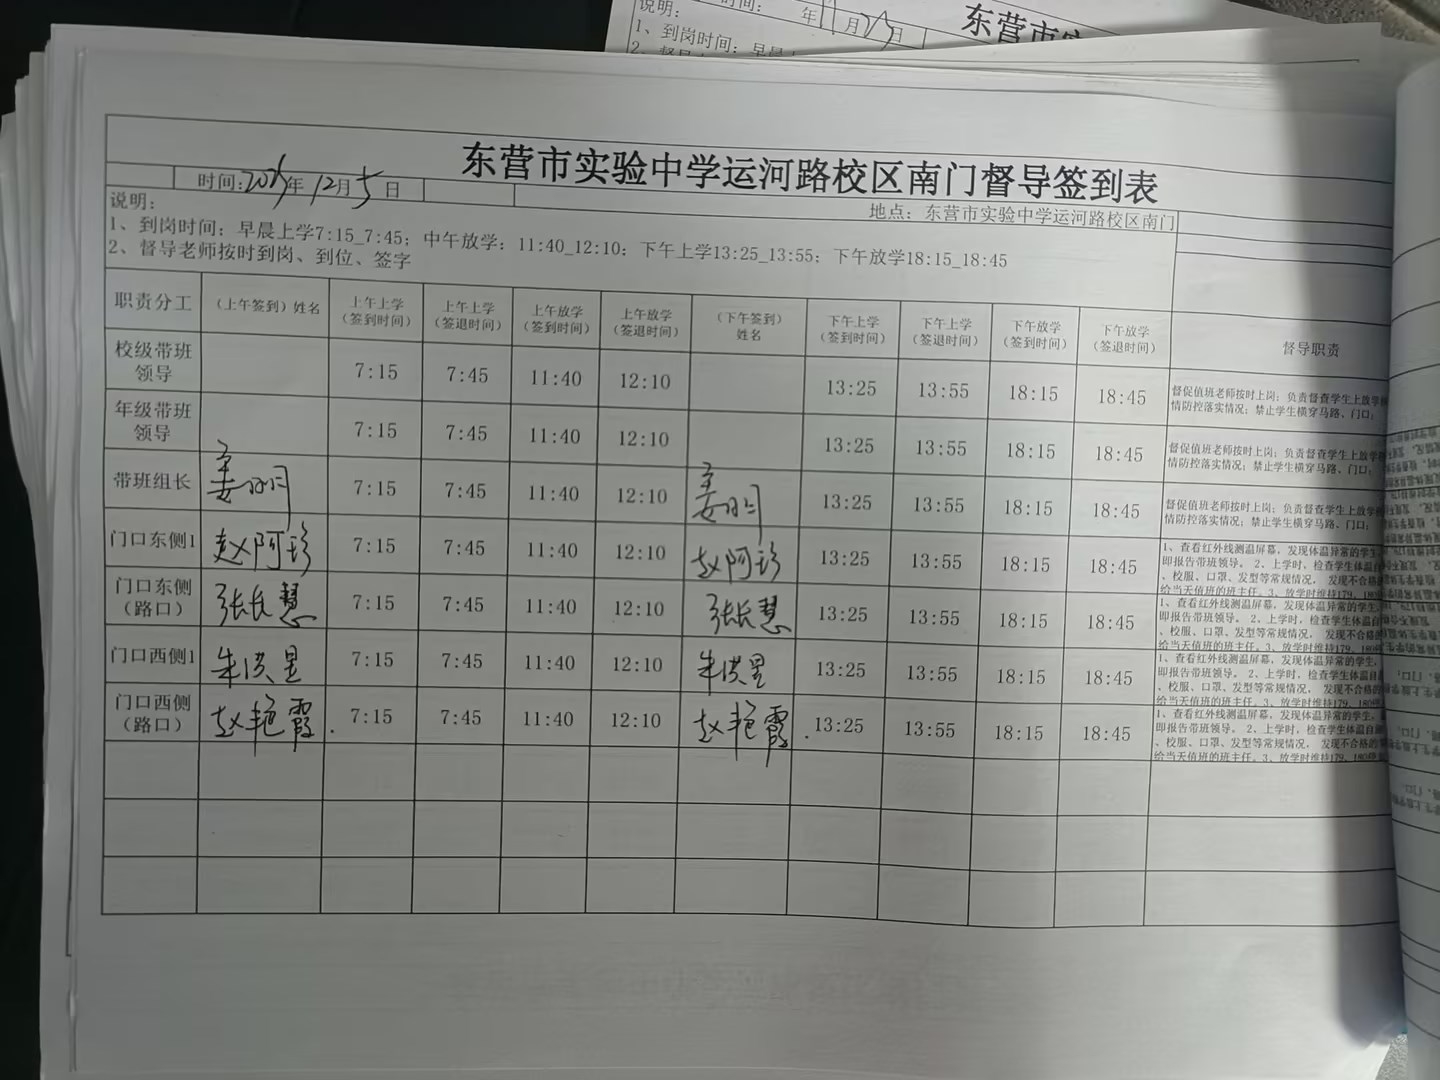 说明：
时间：
年11月25日
东营市实
1、到岗时间：早晨上
东营市实验中学运河路校区南门督导签到表
时间： 年12月5日
地点：东营市实验中学运河路校区南门
说明：
1、到岗时间：早晨上学7:15_7:45；中午放学：11:40_12:10；下午上学13:25_13:55；下午放学18:15_18:45
2、督导老师按时到岗、到位、签字
职责分工 （上午签到）姓名 上午上学（签到时间） 上午上学（签退时间） 上午放学（签到时间） 上午放学（签退时间） （下午签到）姓名 下午上学（签到时间） 下午上学（签退时间） 下午放学（签到时间） 下午放学（签退时间） 督导职责
校级带班领导 7:15 7:45 11:40 12:10 13:25 13:55 18:15 18:45 督促值班老师按时上岗；负责督查学生上放学 情防控落实情况；禁止学生横穿马路、门口；
年级带班领导 7:15 7:45 11:40 12:10 13:25 13:55 18:15 18:45 督促值班老师按时上岗；负责督查学生上放学 情防控落实情况；禁止学生横穿马路、门口；
带班组长 姜明月 7:15 7:45 11:40 12:10 姜明月 13:25 13:55 18:15 18:45 督促值班老师按时上岗；负责督查学生上放学 情防控落实情况；禁止学生横穿马路、门口；
门口东侧1 赵阿珍 7:15 7:45 11:40 12:10 赵阿珍 13:25 13:55 18:15 18:45 1、查看红外线测温屏幕，发现体温异常的学生， 即报告带班领导。 2、上学时，检查学生体温自 、校服、口罩、发型等常规情况， 发现不合格的 给当天值班的班主任。3、放学时维持179、180
门口东侧（路口） 张长慧 7:15 7:45 11:40 12:10 张长慧 13:25 13:55 18:15 18:45 1、查看红外线测温屏幕，发现体温异常的学生， 即报告带班领导。 2、上学时，检查学生体温自 、校服、口罩、发型等常规情况， 发现不合格的 给当天值班的班主任。3、放学时维持179、180
门口西侧1 朱洪星 7:15 7:45 11:40 12:10 朱洪星 13:25 13:55 18:15 18:45 1、查看红外线测温屏幕，发现体温异常的学生， 即报告带班领导。 2、上学时，检查学生体温自 、校服、口罩、发型等常规情况， 发现不合格的 给当天值班的班主任。3、放学时维持179、180
门口西侧（路口） 赵艳霞 7:15 7:45 11:40 12:10 赵艳霞 13:25 13:55 18:15 18:45 1、查看红外线测温屏幕，发现体温异常的学生， 即报告带班领导。 2、上学时，检查学生体温自 、校服、口罩、发型等常规情况， 发现不合格的 给当天值班的班主任。3、放学时维持179、180